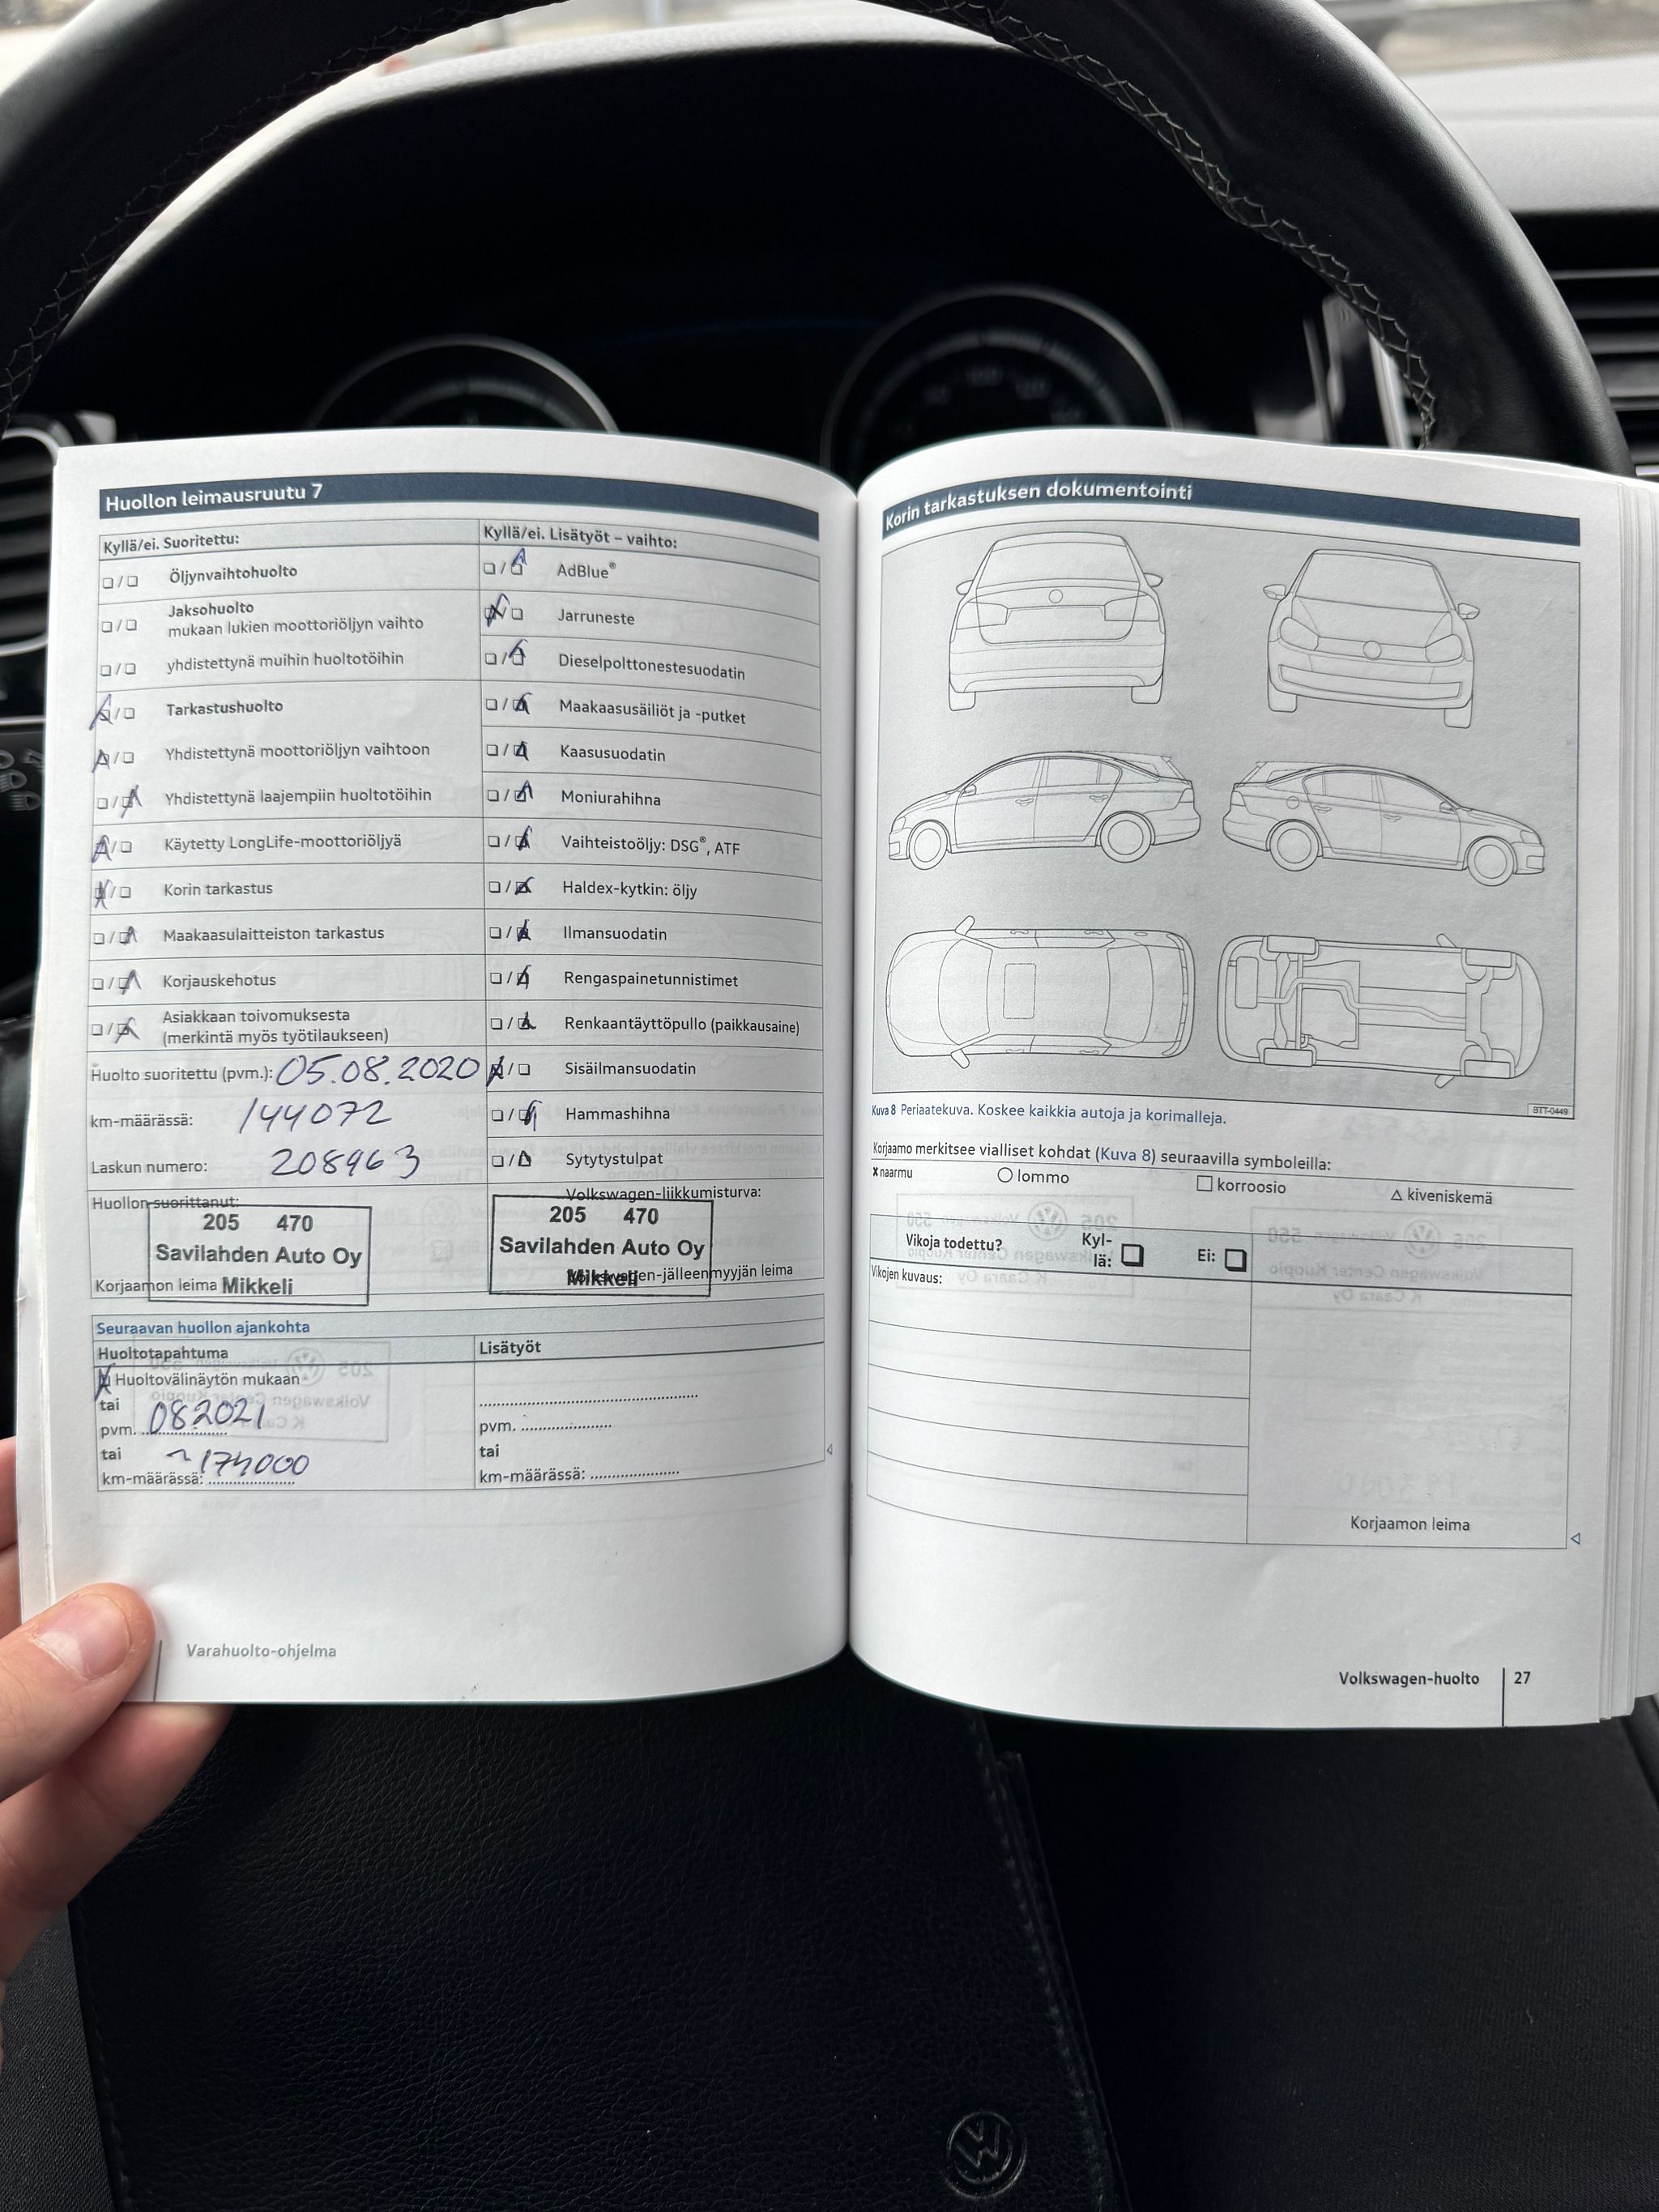 Huollon leimausruutu 7
Kyllä/ei. Suoritettu:
☐/☐ Öljynvaihtohuolto
☐/☐ Jaksohuolto
mukaan lukien moottoriöljyn vaihto
☐/☐ yhdistettynä muihin huoltotöihin
☒/☐ Tarkastushuolto
☒/☐ Yhdistettynä moottoriöljyn vaihtoon
☐/☒ Yhdistettynä laajempiin huoltotöihin
☒/☐ Käytetty LongLife-moottoriöljyä
☒/☐ Korin tarkastus
☐/☒ Maakaasulaitteiston tarkastus
☐/☒ Korjauskehotus
☐/☒ Asiakkaan toivomuksesta
(merkintä myös työtilaukseen)
Huolto suoritettu (pvm.): 05.08.2020
km-määrässä: 144072
Laskun numero: 208963
Huollon suorittanut:
205 470
Savilahden Auto Oy
Korjaamon leima Mikkeli
Kyllä/ei. Lisätyöt – vaihto:
☐/☒ AdBlue®
☒/☐ Jarruneste
☐/☒ Dieselpolttonestesuodatin
☐/☒ Maakaasusäiliöt ja -putket
☐/☒ Kaasusuodatin
☐/☒ Moniurahihna
☐/☒ Vaihteistoöljy: DSG®, ATF
☐/☒ Haldex-kytkin: öljy
☐/☒ Ilmansuodatin
☐/☒ Rengaspainetunnistimet
☐/☒ Renkaantäyttöpullo (paikkausaine)
☒/☐ Sisäilmansuodatin
☐/☒ Hammashihna
☐/☒ Sytytystulpat
Volkswagen-liikkumisturva:
205 470
Savilahden Auto Oy
Mikkeli
Volkswagen-jälleenmyyjän leima
Seuraavan huollon ajankohta
Huoltotapahtuma
☒ Huoltovälinäytön mukaan
tai
pvm. 082021
tai
km-määrässä: ~174000
Lisätyöt
pvm.
tai
km-määrässä:
Varahuolto-ohjelma
Korin tarkastuksen dokumentointi
BTT-0449
Kuva 8 Periaatekuva. Koskee kaikkia autoja ja korimalleja.
Korjaamo merkitsee vialliset kohdat (Kuva 8) seuraavilla symboleilla:
× naarmu ○ lommo □ korroosio △ kiveniskemä
Vikoja todettu? Kyl-
lä: ☐ Ei: ☐
Vikojen kuvaus:
Korjaamon leima
Volkswagen-huolto 27